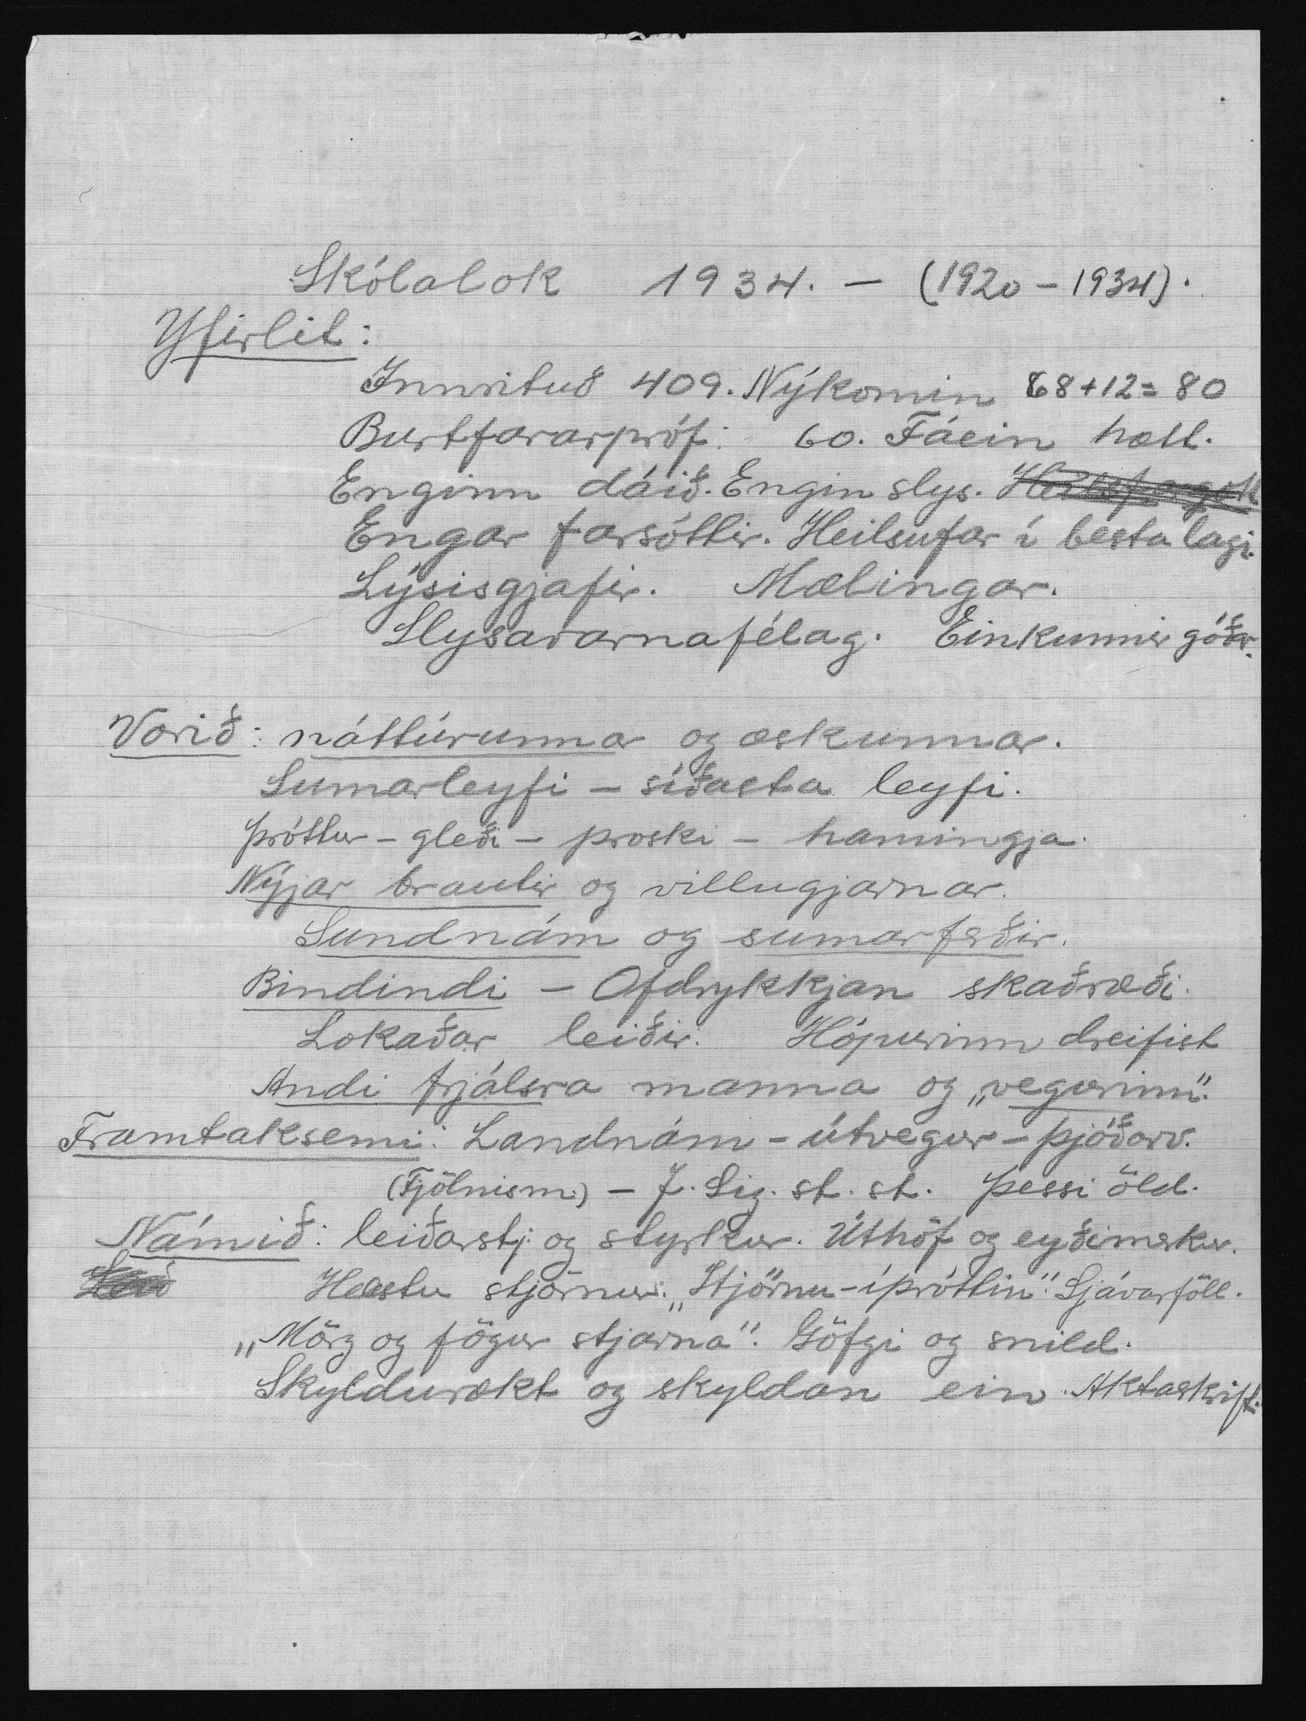 Skólalok 1934. – (1920 – 1934).
Yfirlit:
Innrituð 409. Nýkomin 68+12=80
Burtfararpróf: 60. Fáein hætt.
Enginn dáið. Engin slys.
Engar farsóttir. Heilsufar í besta lagi.
Lýsisgjafir. Mælingar.
Slysavarnafélag. Einkunnir góðar.
Vorið: náttúrunnar og æskunnar.
Sumarleyfi – síðasta leyfi.
Þróttur – gleði – þroski – hamingja.
Nýjar brautir og villugjarnar.
Sundnám og sumarferðir.
Bindindi – Ofdrykkjan skaðræði.
Lokaðar leiðir. Hópurinn dreifist
Andi frjálsra manna og „vegurinn".
Framtaksemi: Landnám – útvegur – þjóðarv.
(Fjölnism.) – J. Sig. st. st. Þessi öld.
Námið: leiðarstj. og styrkur. Úthöf og eyðimerkur.
Hæstu stjörnur. „Stjörnu-íþróttin". Sjávarföll.
„Mörg og fögur stjarna". Göfgi og snild.
Skyldurækt og skyldan ein. Aktaskrift.